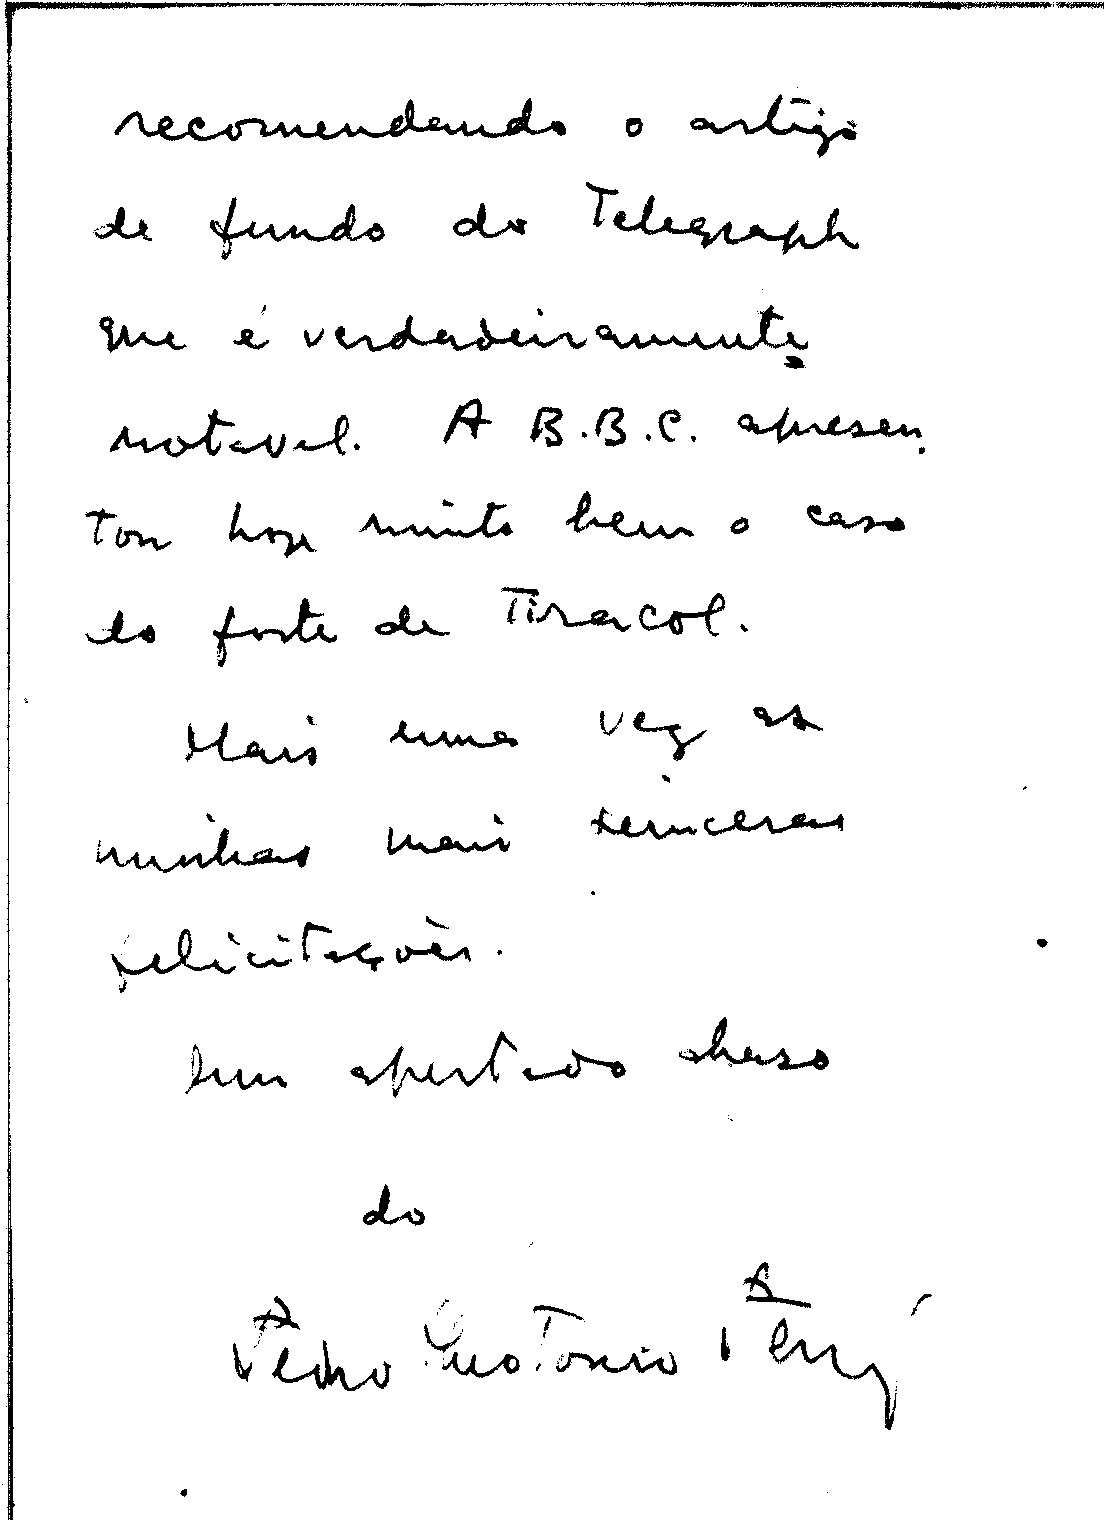 recomendando o artigo
de fundo do Telegraph
que é verdadeiramente
notavel. A B.B.C. apresen
tou hoje muito bem o caso
do forte de Tiracol.
Mais uma vez as
minhas mais sinceras
felicitações.
Num apertado abraso
do
Pedro